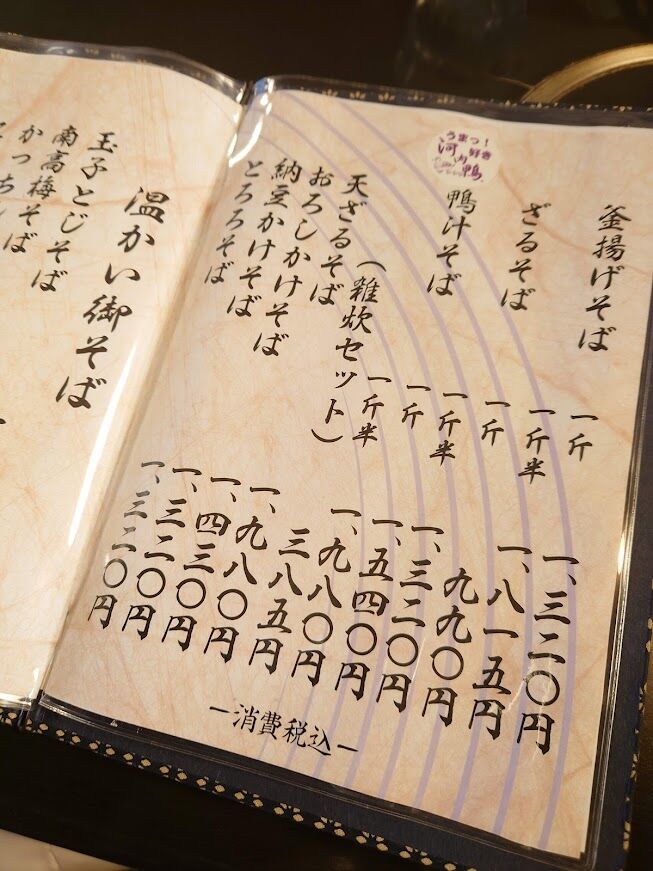 釜揚げそば 一斤 一、三二〇円
一斤半 一、八一五円
ざるそば 一斤 九九〇円
一斤半 一、三二〇円
うまっ!好き
河内鴨
鴨汁そば 一斤 一、五四〇円
一斤半 一、九八〇円
(雑炊セット) 三八五円
天ざるそば 一、九八〇円
おろしかけそば 一、四三〇円
納豆かけそば 一、三二〇円
とろろそば 一、三二〇円
ー消費税込ー
温かい御そば
玉子とじそば
南高梅そば
かっちんそば